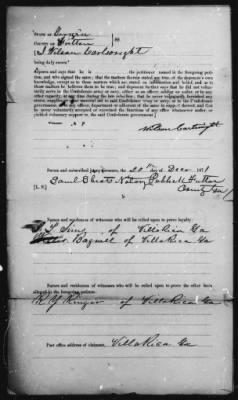 STATE OF Georgia
COUNTY OF Fulton } ss
I Wilson Cartwright
being duly sworn
deposes and says that he is the petitioner named in the foregoing petition, and who signed the same; that the matters therein stated are true, of deponent's own
knowledge, except as to those matters which are stated on information and belief, and as to
those matters he believes them to be true; and deponent further says that he did not voluntarily
serve in the Confederate army or navy, either as an officer, soldier, or sailor, or in any
other capacity, at any time during the late rebellion; that he never voluntarily furnished any
stores, supplies, or other material aid to said Confederate army or navy, or to the Confederate
government, or to any officer, department, or adherent of the same in support thereof; and that
he never voluntarily accepted or exercised the functions of any office whatsoever under, or
yielded voluntary support to, the said Confederate government.
Wilson Cartwright
Sworn and subscribed in my presence, the 20th day of Dec 1871
[L. S.]
Names and residences of witnesses who will be relied upon to prove loyalty:
of Villa Rica Ga
Bagwell of Villa Rica Ga
Names and residences of witnesses who will be relied upon to prove the other facts
alleged in the foregoing petition:
of Villa Rica Ga
Post office address of claimant, Villa Rica Ga